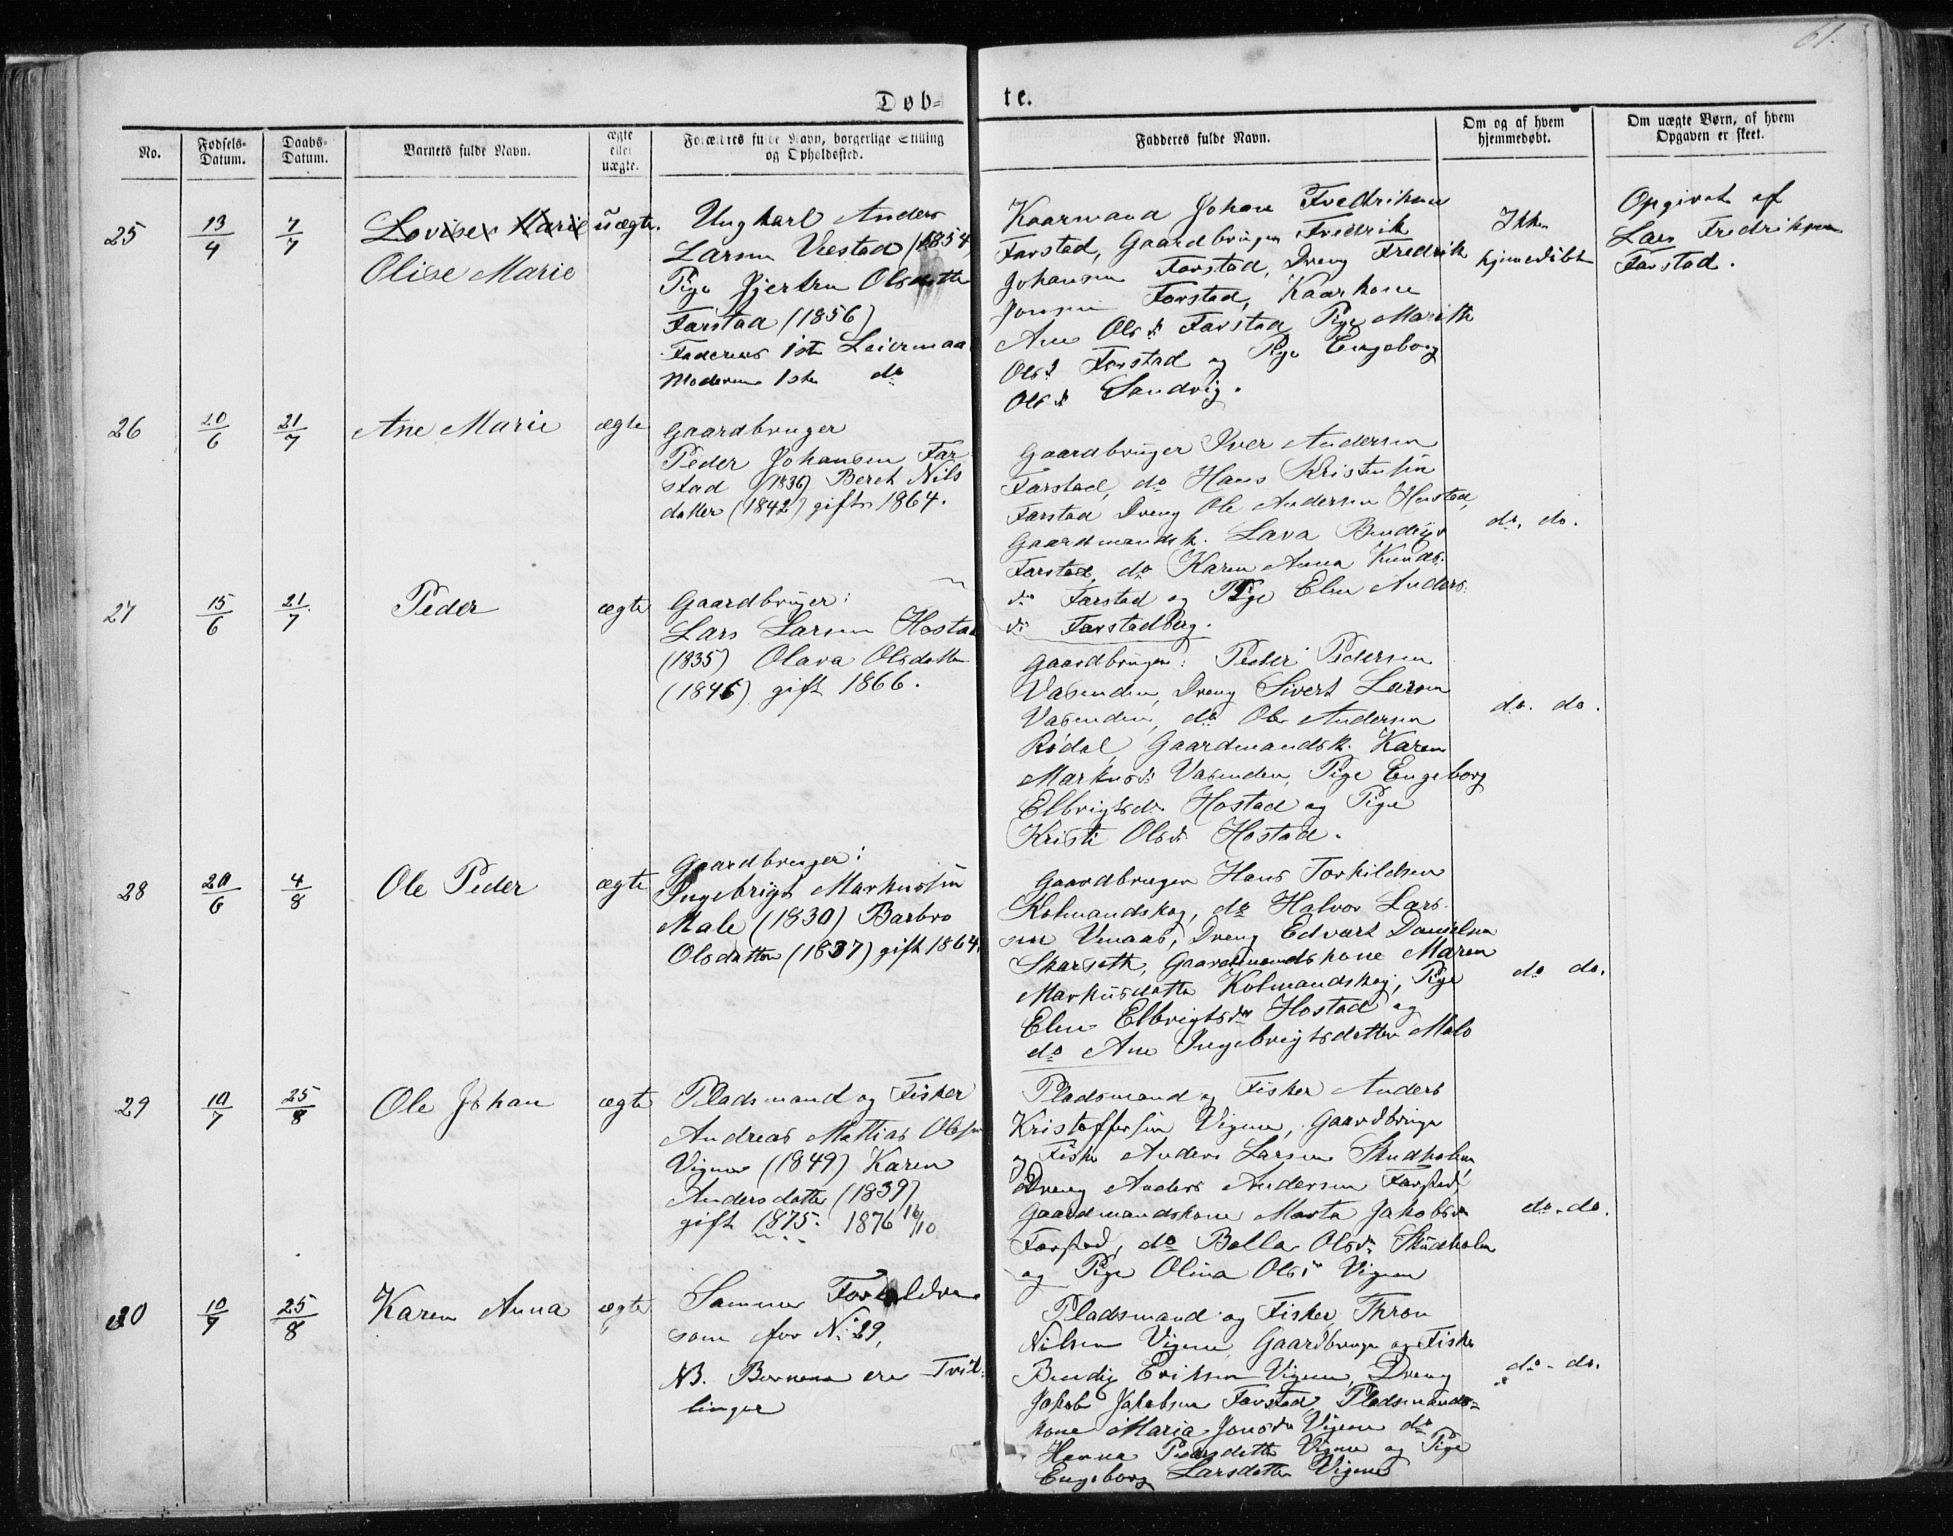 61.
Døb-
te.
No.
Fødsels-
Datum.
Daabs-
Datum.
Barnets fulde Navn.
ægte
eller
uægte.
Forældres fulde Navn, borgerlige Stilling
og Opholdssted.
Fadderes fulde Navn.
Om og af hvem
hjemmedøbt.
Om uægte Børn, af hvem
Opgaven er skeet.
25
13/4
7/7
Lovise Marie
Olise Marie
uægte.
Ungkarl Anders
Larsen Vestad (1854)
Pige Gjertru Olsdatter
Farstad (1856)
Faderens 1ste Leiermaal
Moderens 1ste do
Kaarmand Johan Fredriksen
Farstad, Gaardbruger Fredrik
Johansen Farstad, Dreng Fredrik
Jonsen Farstad, Kaarkone
Ane Olsd. Farstad Pige Marith
Olsd. Farstad og Pige Engeborg
Olsd. Sandvig.
Ikke
hjemedøbt
Opgivet af
Lars Fredriksen
Farstad.
26
20/6
21/7
Ane Marie
ægte
Gaardbruger
Peder Johansen Far
stad (1836) Beret Nils
datter (1842) gift 1864.
Gaardbruger Iver Andersen
Farstad, do Hans Kristensen
Farstad Dreng Ole Andersen Hustad,
Gaardmandsk. Lava Bendigs
Farstad, do Karen Anna Knuds.
dr Farstad og Pige Elen Anders.
dr Farstadberg.
do. do.
27
15/6
21/7
Peder
ægte
Gaardbruger:
Lars Larsen Hostad
(1835) Olava Olsdatter
(1846) gift 1866.
Gaardbruger: Peder Pedersen
Vasenden, Dreng Sivert Larsen
Vasenden, do Ole Andersen
Rødal, Gaardmandsk. Karen
Markusdr Vasenden, Pige Engeborg
Elbrigtsdr Hostad og Pige
Kristi Olsdr Hostad.
do. do.
28
20/6
4/8
Ole Peder
ægte
Gaardbruger:
Ingebrigt Markussen
Male (1830) Barbro
Olsdatter (1837) gift 1864.
Gaardbruger Hans Torkildsen
Kolmandskog, do Halvor Lars-
sen Vinaas, Dreng Edvart Danielsen
Skarseth, Gaardmandskone Maren
Markusdatter Kolmandskog, Pige
Elen Elbrigtsdr Hostad og
do Ane Ingebrigtsdatter Malo
do do.
29
10/7
25/8
Ole Johan
ægte
Pladsmand og Fisker
Andreas Mattias Olsen
Vigene (1849) Karen
Andersdatter (1839)
gift 1875. 1876 16/10
Pladsmand og Fisker Anders
Kristoffersen Vigene, Gaardbruger
og Fisker Anders Larsen Skudholm
Dreng Anders Andersen Farstad
Gaardmandskone Marta Jakobsdr
Farstad, do Bolla Olsdr Skudholm
og Pige Olina Olsdr Vigene
do. do.
30
10/7
25/8
Karen Anna
ægte
Samme Forældre
som for No 29,
NB. Børnene ere Tvil-
linger
Pladsmand og Fisker Thron
Nilsen Vigene, Gaardbruger og Fisker
Bendig Eriksen Vigene, Dreng
Jakob Jakobsen Farstad, Pladsmands-
kone Maria Jonsdr Vigene do
Hanna Pedersdatter Vigene og Pige
Engeborg Larsdatter Vigene
do. do.